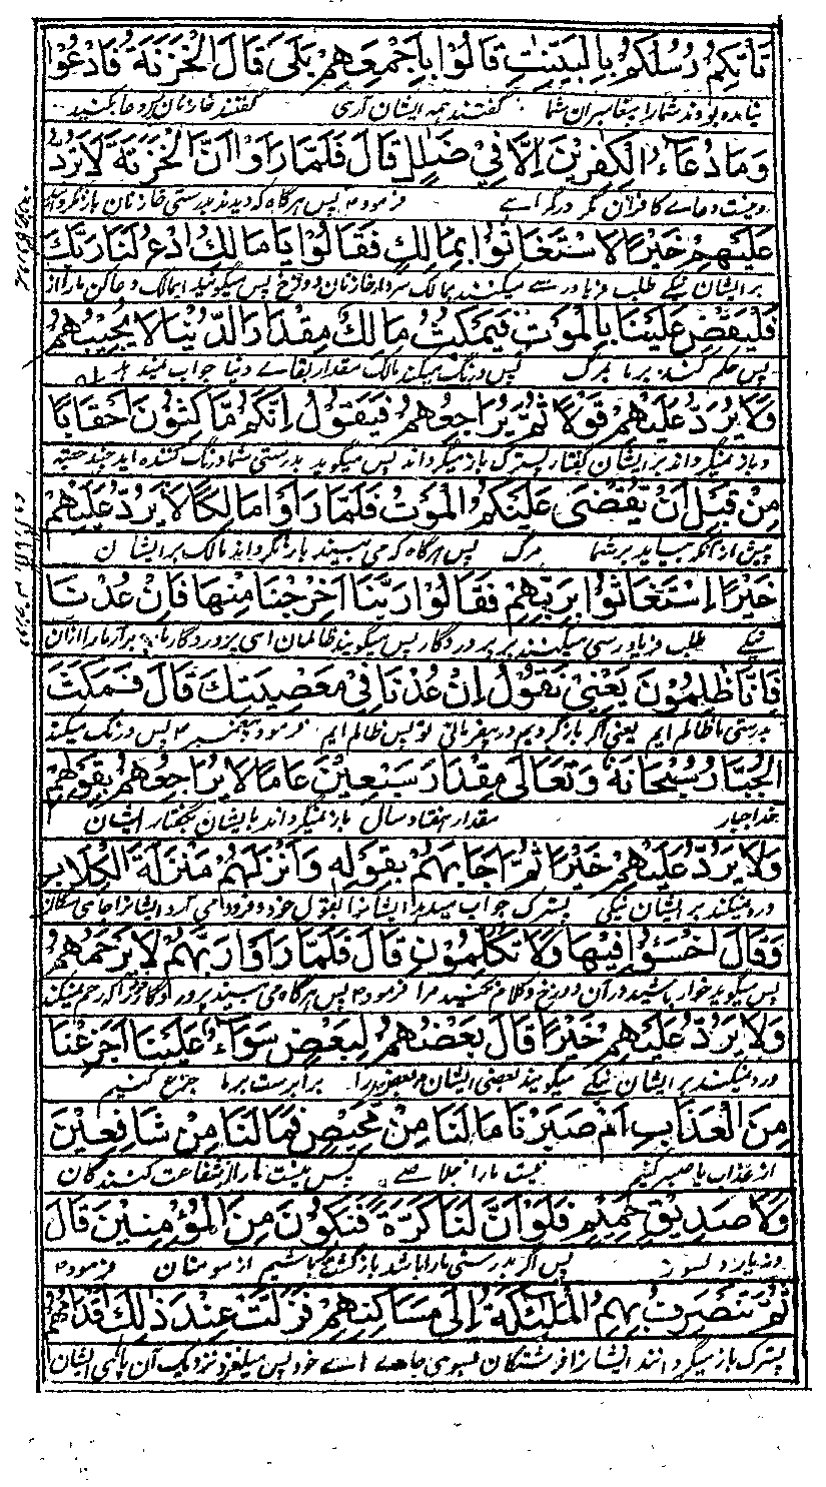 تَأْتِكُمْ رُسُلُكُمْ بِالْبَيِّنٰتِ قَالُوْا بِاَجْمَعِهِمْ بَلٰى قَالَ الْخَزَنَةُ فَادْعُوْا
نیامده بودند شما را پیغامبران شما گفتند همه ایشان آری گفتند خازنان پس دعا بکنید
وَمَا دُعَآءُ الْكٰفِرِيْنَ اِلَّا فِيْ ضَلٰلٍ قَالَ فَلَمَّا رَاَوْا اَنَّ الْخَزَنَةَ لَا تَرُدُّ
ونیست دعاے کافران مگر در گمراهے فرمود پس هرگاه که دیدند بدرستی خازنان باز نگرد
عَلَيْهِمْ خَيْرًا لَا اسْتَغَاثُوْا بِمَالِكٍ فَقَالُوْا يَا مَالِكُ ادْعُ لَنَا رَبَّكَ
بر ایشان نیکے طلب فریاد رسے میکنند بمالک سردار خازنان دوزخ پس میگویند ایمالک دعا کن ما را از
فَلْيَقْضِ عَلَيْنَا بِالْمَوْتِ فَيَمْكُثُ مَالِكٌ مِقْدَارَ الدُّنْيَا لَا يُجِيْبُهُمْ
پس حکم کند بر ما بمرگ پس درنگ میکند مالک مقدار بقاے دنیا جواب نمیدهد
وَلَا يَرُدُّ عَلَيْهِمْ قَوْلًا ثُمَّ يُرَاجِعُهُمْ فَيَقُوْلُ اِنَّكُمْ مَّاكِثُوْنَ اَحْقَابًا
و باز نمیگرداند بر ایشان گفتار پسترک باز میگرداند پس میگوید بدرستی شما درنگ کننده اید چند حقبه
مِنْ قَبْلِ اَنْ يُّقْضٰى عَلَيْكُمُ الْمَوْتُ فَلَمَّا رَاَوْا مَالِكًا لَا يَرُدُّ عَلَيْهِمْ
پیش از آنکه بیاید بر شما مرگ پس هرگاه که می بینند باز نگرداند مالک بر ایشان
خَيْرًا اِسْتَغَاثُوْا بِرَبِّهِمْ فَقَالُوْا رَبَّنَا اَخْرِجْنَا مِنْهَا فَاِنْ عُدْنَا
نیکے طلب فریاد رسی میکنند بر پروردگار پس میگویند ظالمان ای پروردگار ما برآر ما را از آن
فَاِنَّا ظٰلِمُوْنَ يَعْنِيْ نَقُوْلُ اِنْ عُدْنَا فِيْ مَعْصِيَتِكَ قَالَ فَمَكَثَ
بدرستی ما ظالم ایم یعنی اگر باز گردیم در بیفرمانی تو پس ظالم ایم فرمود پیغمبر پس درنگ میکند
الْجَبَّارُ سُبْحَانَهٗ وَتَعَالٰى مِقْدَارَ سَبْعِيْنَ عَامًا لَا يُرَاجِعُهُمْ بِقَوْلِهِمْ
خدا جبار مقدار هفتاد سال باز نمیگرداند با ایشان بگفتار ایشان
وَلَا يَرُدُّ عَلَيْهِمْ خَيْرًا ثُمَّ اَجَابَهُمْ بِقَوْلِهٖ وَاَنْزَلَهُمْ مَنْزِلَةَ الْكِلَابِ
ورد نمیکند بر ایشان نیکی پسترک جواب میدهد ایشانرا بقول خود و فرود می آرد ایشانرا جای سگان
وَقَالَ اخْسَئُوْا فِيْهَا وَلَا تُكَلِّمُوْنِ قَالَ فَلَمَّا رَاَوْا رَبَّهُمْ لَا يَرْحَمُهُمْ
پس میگوید خوار باشید در آن دوزخ و کلام مکنید مرا فرمود پس هرگاه می بینند پروردگار خود را که رحم نمیکند
وَلَا يَرُدُّ عَلَيْهِمْ خَيْرًا قَالَ بَعْضُهُمْ لِبَعْضٍ سَوَآءٌ عَلَيْنَا اَجَزِعْنَا
ورد نمیکند بر ایشان نیکے میگویند بعضی ایشان بعضی را برابر ست بر ما جزع کنیم
مِنَ الْعَذَابِ اَمْ صَبَرْنَا مَا لَنَا مِنْ مَّحِيْصٍ فَمَا لَنَا مِنْ شَافِعِيْنَ
از عذاب یا صبر کنیم نیست ما را خلاصے پس نیست ما را از شفاعت کنندگان
وَلَا صَدِيْقٍ حَمِيْمٍ فَلَوْ اَنَّ لَنَا كَرَّةً فَنَكُوْنَ مِنَ الْمُؤْمِنِيْنَ قَالَ
ونه یار دلسوز پس اگر بدرستی ما را باشد باز گشتن باشیم از مومنان فرمود
ثُمَّ تَنْصَرِفُ بِهِمُ الْمَلٰئِكَةُ اِلٰى مَسَاكِنِهِمْ فَزَلَّتْ عِنْدَ ذٰلِكَ اَقْدَامُهُمْ
پسترک باز میگردانند ایشانرا فرشتگان بسوی جاهاے خود پس میلغزد نزدیک آن پاهای ایشان